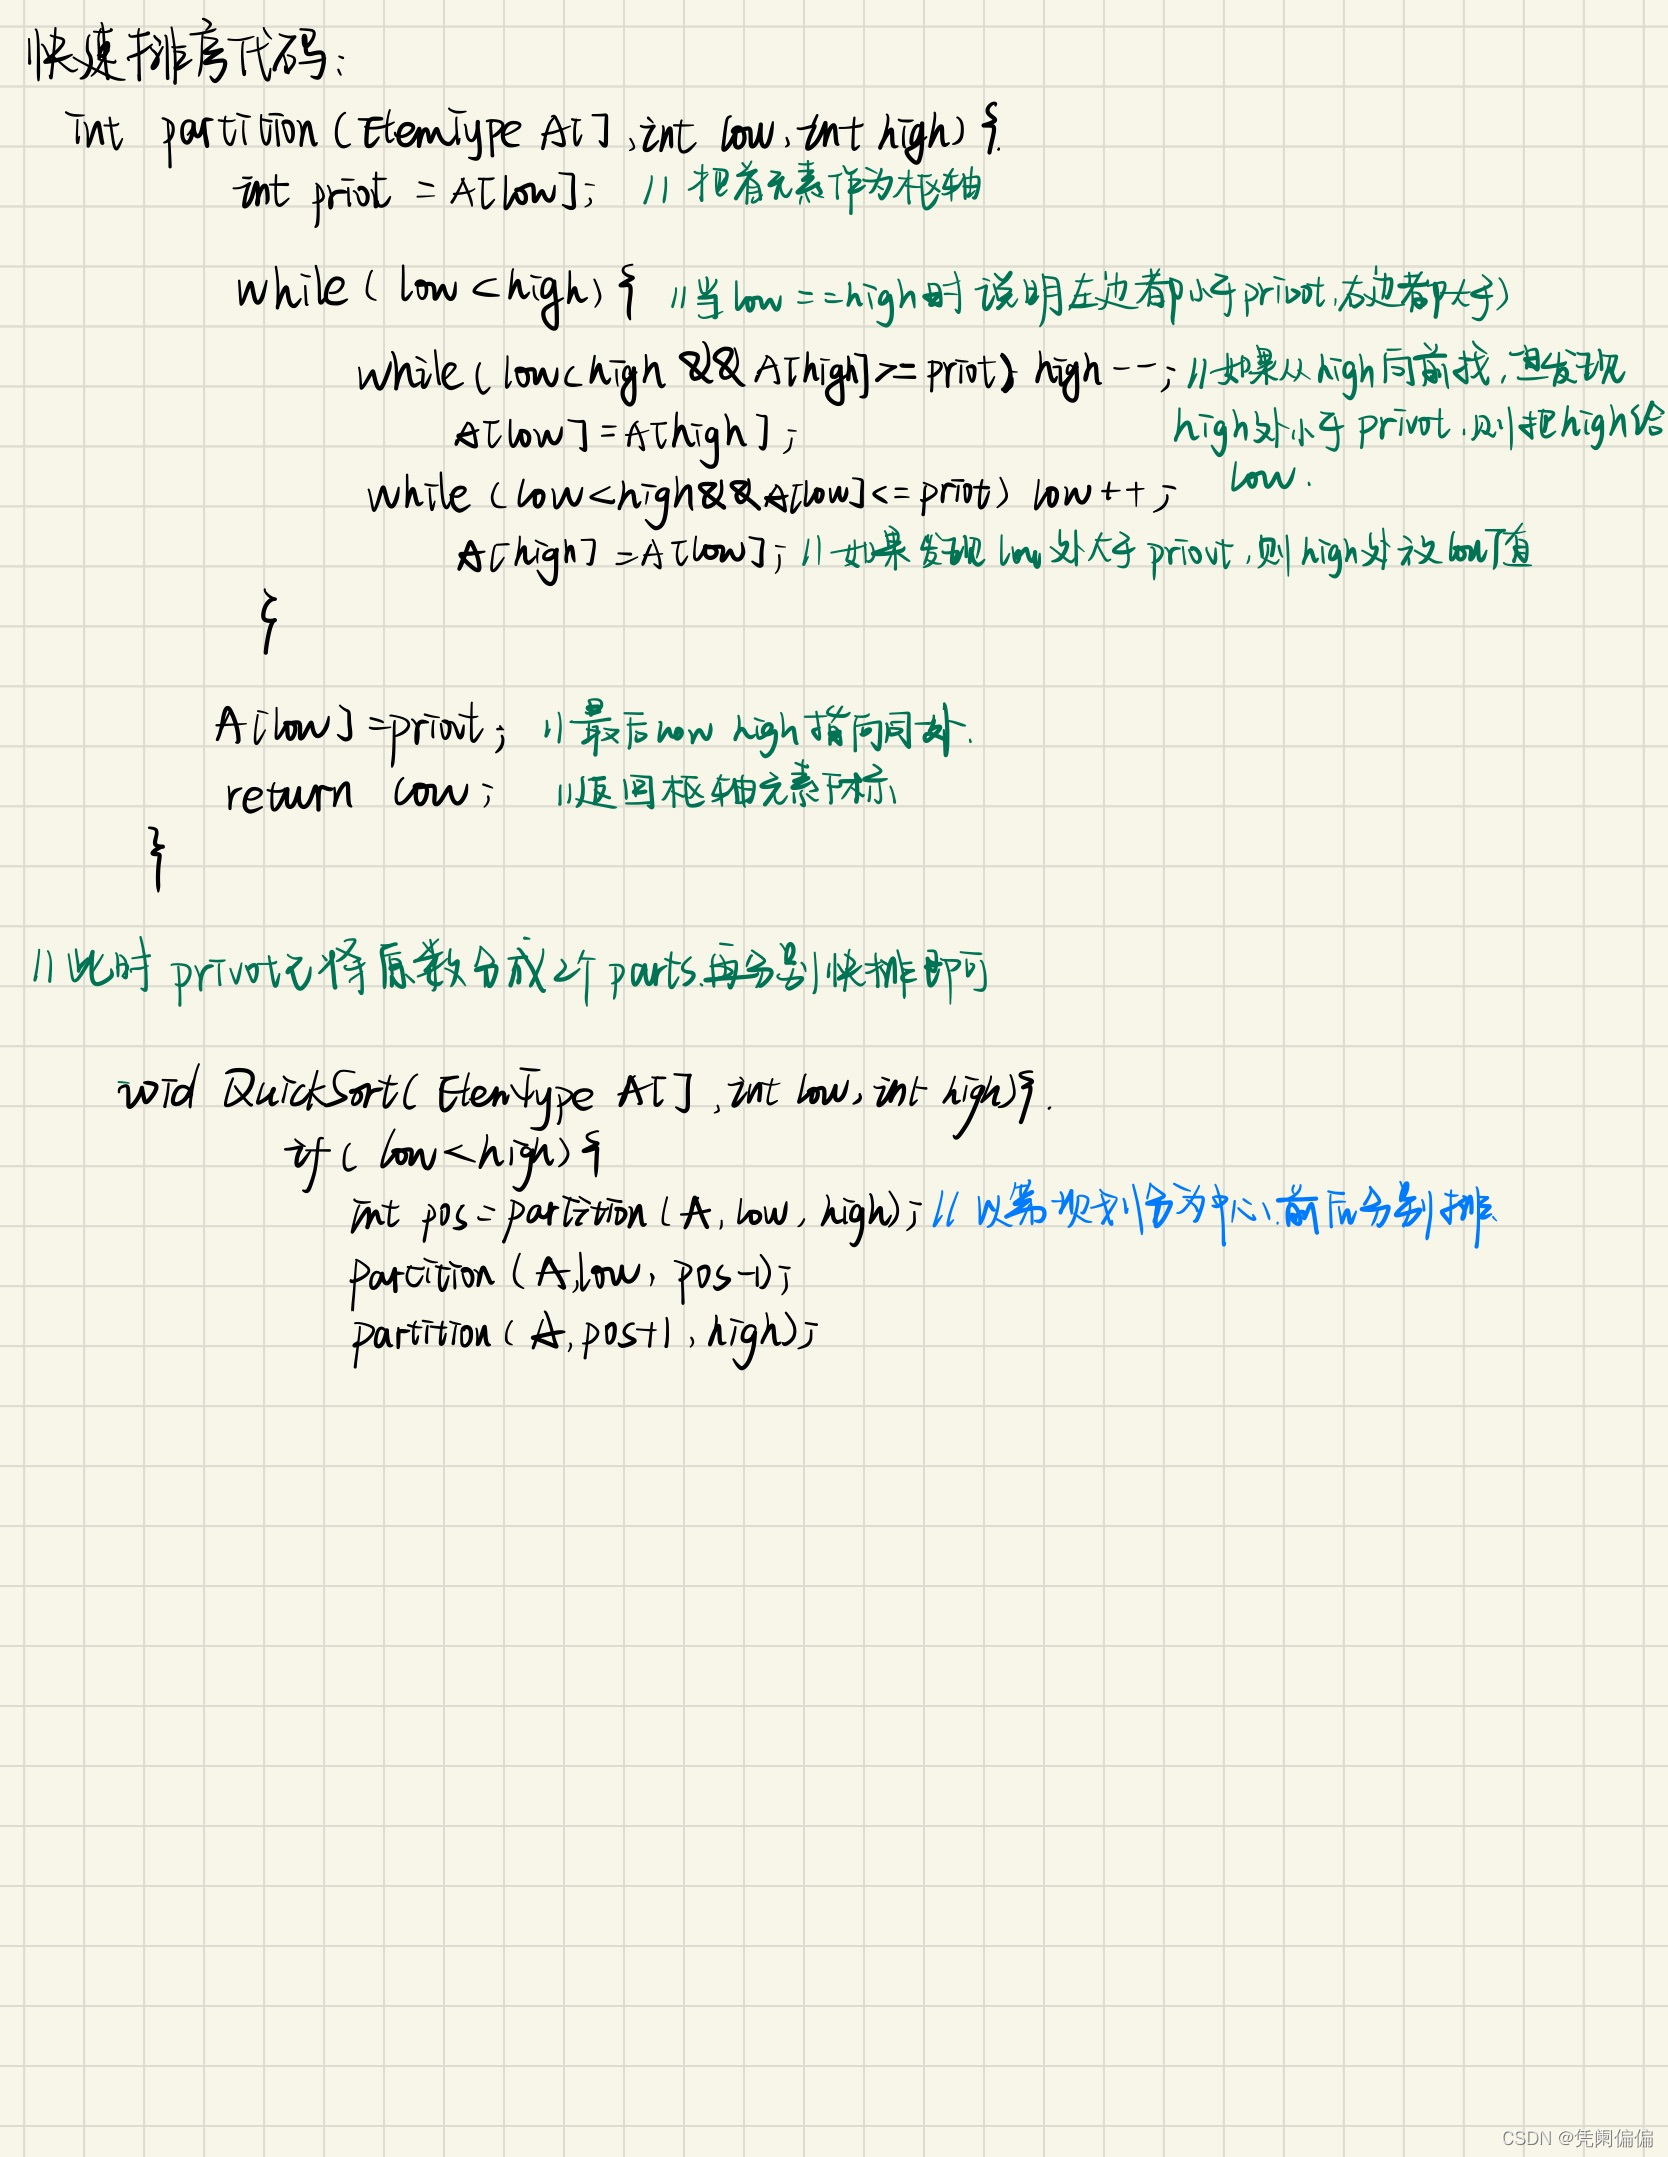 快速排序代码:
int partition (ElemType A[], int low, int high) {
int priot = A[low]; // 把首元素作为枢轴
while ( low < high) { // 当low == high时 说明左边都小于 privot, 右边都大于)
while ( low < high && A[high] >= priot) high --; // 如果从high向前找, 且发现
A[low] = A[high]; high处小于 privot, 则把high给
while (low < high && A[low] <= priot) low ++; low.
A[high] = A[low]; // 如果发现 low 处大于 priovt, 则 high处放low值
}
A[low] = priovt; // 最后 low high 指向同处.
return low; // 返回枢轴元素下标
}
// 此时 privot元将原数分成2个parts.再分别快排即可
void QuickSort( ElemType A[], int low, int high){.
if ( low < high) {
int pos = partition (A, low, high); // 以第 项划分为中心,前后分别排
partition (A, low, pos-1);
partition (A, pos+1, high);
CSDN @凭阑偏偏